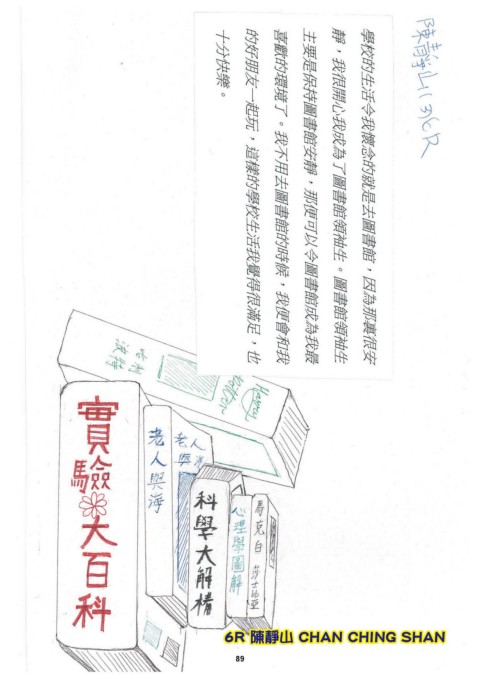 陳靜山(3)6R
學校的生活令我懷念的就是去圖書館，因為那裏很安
靜，我很開心我成為了圖書館領袖生。圖書館領袖生
主要是保持圖書館安靜，那便可以令圖書館成為我最
喜歡的環境了。我不用去圖書館的時候，我便會和我
的好朋友一起玩，這樣的學校生活我覺得很滿足，也
十分快樂。
哈利
波特
Harry
Potter
實驗大百科
老人與海
老人
與海
科學大解精
心理學圖解
馬克白 莎士比亞
6R 陳靜山 CHAN CHING SHAN
89